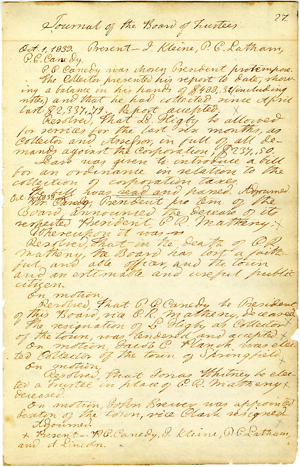 27.
Journal of the Board of Trustees
Oct. 1, 1839. Present - J Kleine, P. C. Latham,
P. C. Canedy.
P. C. Canedy was chosen President pro tempore.
The Collector presented his report to date, show-
ing a balance in his hands of $433,31 (including
notes) and that he had collected since April
last $2,537,79. Report accepted.
Resolved, That L. Higby be allowed
for services for the last six months, as
Collector and Assessor, in full of all de-
mands against the Corporation $217,50.
Leave was given to introduce a bill
for an ordinance in relation to the
collection of corporation taxes.
The bill was read and passed. Adjourned
President pro tem of the
Board, announced the decease of its
respected President C. R. Matheny.
Whereupon it was
Resolved, That in the death of C. R.
Matheny, the Board has lost a faith-
ful and able officer, and the town
and an estimable and useful public
citizen.
On motion
Resolved, That P. C. Canedy be President
of this Board, vice C. R. Matheny, deceased
The resignation of L. Higby as Collector
of the town, was presented and accepted
On motion, was elec-
ted Collector of the town of Springfield.
On motion
Resolved, That Jonas Whitney be elec-
ted a Trustee in place of C. R. Matheny
deceased.
On motion John Brewer was appointed
of the town, vice Clark resigned
Adjourned.
+ Present - P. C. Canedy, J. Kleine, P. C. Latham,
and A. Lincoln.